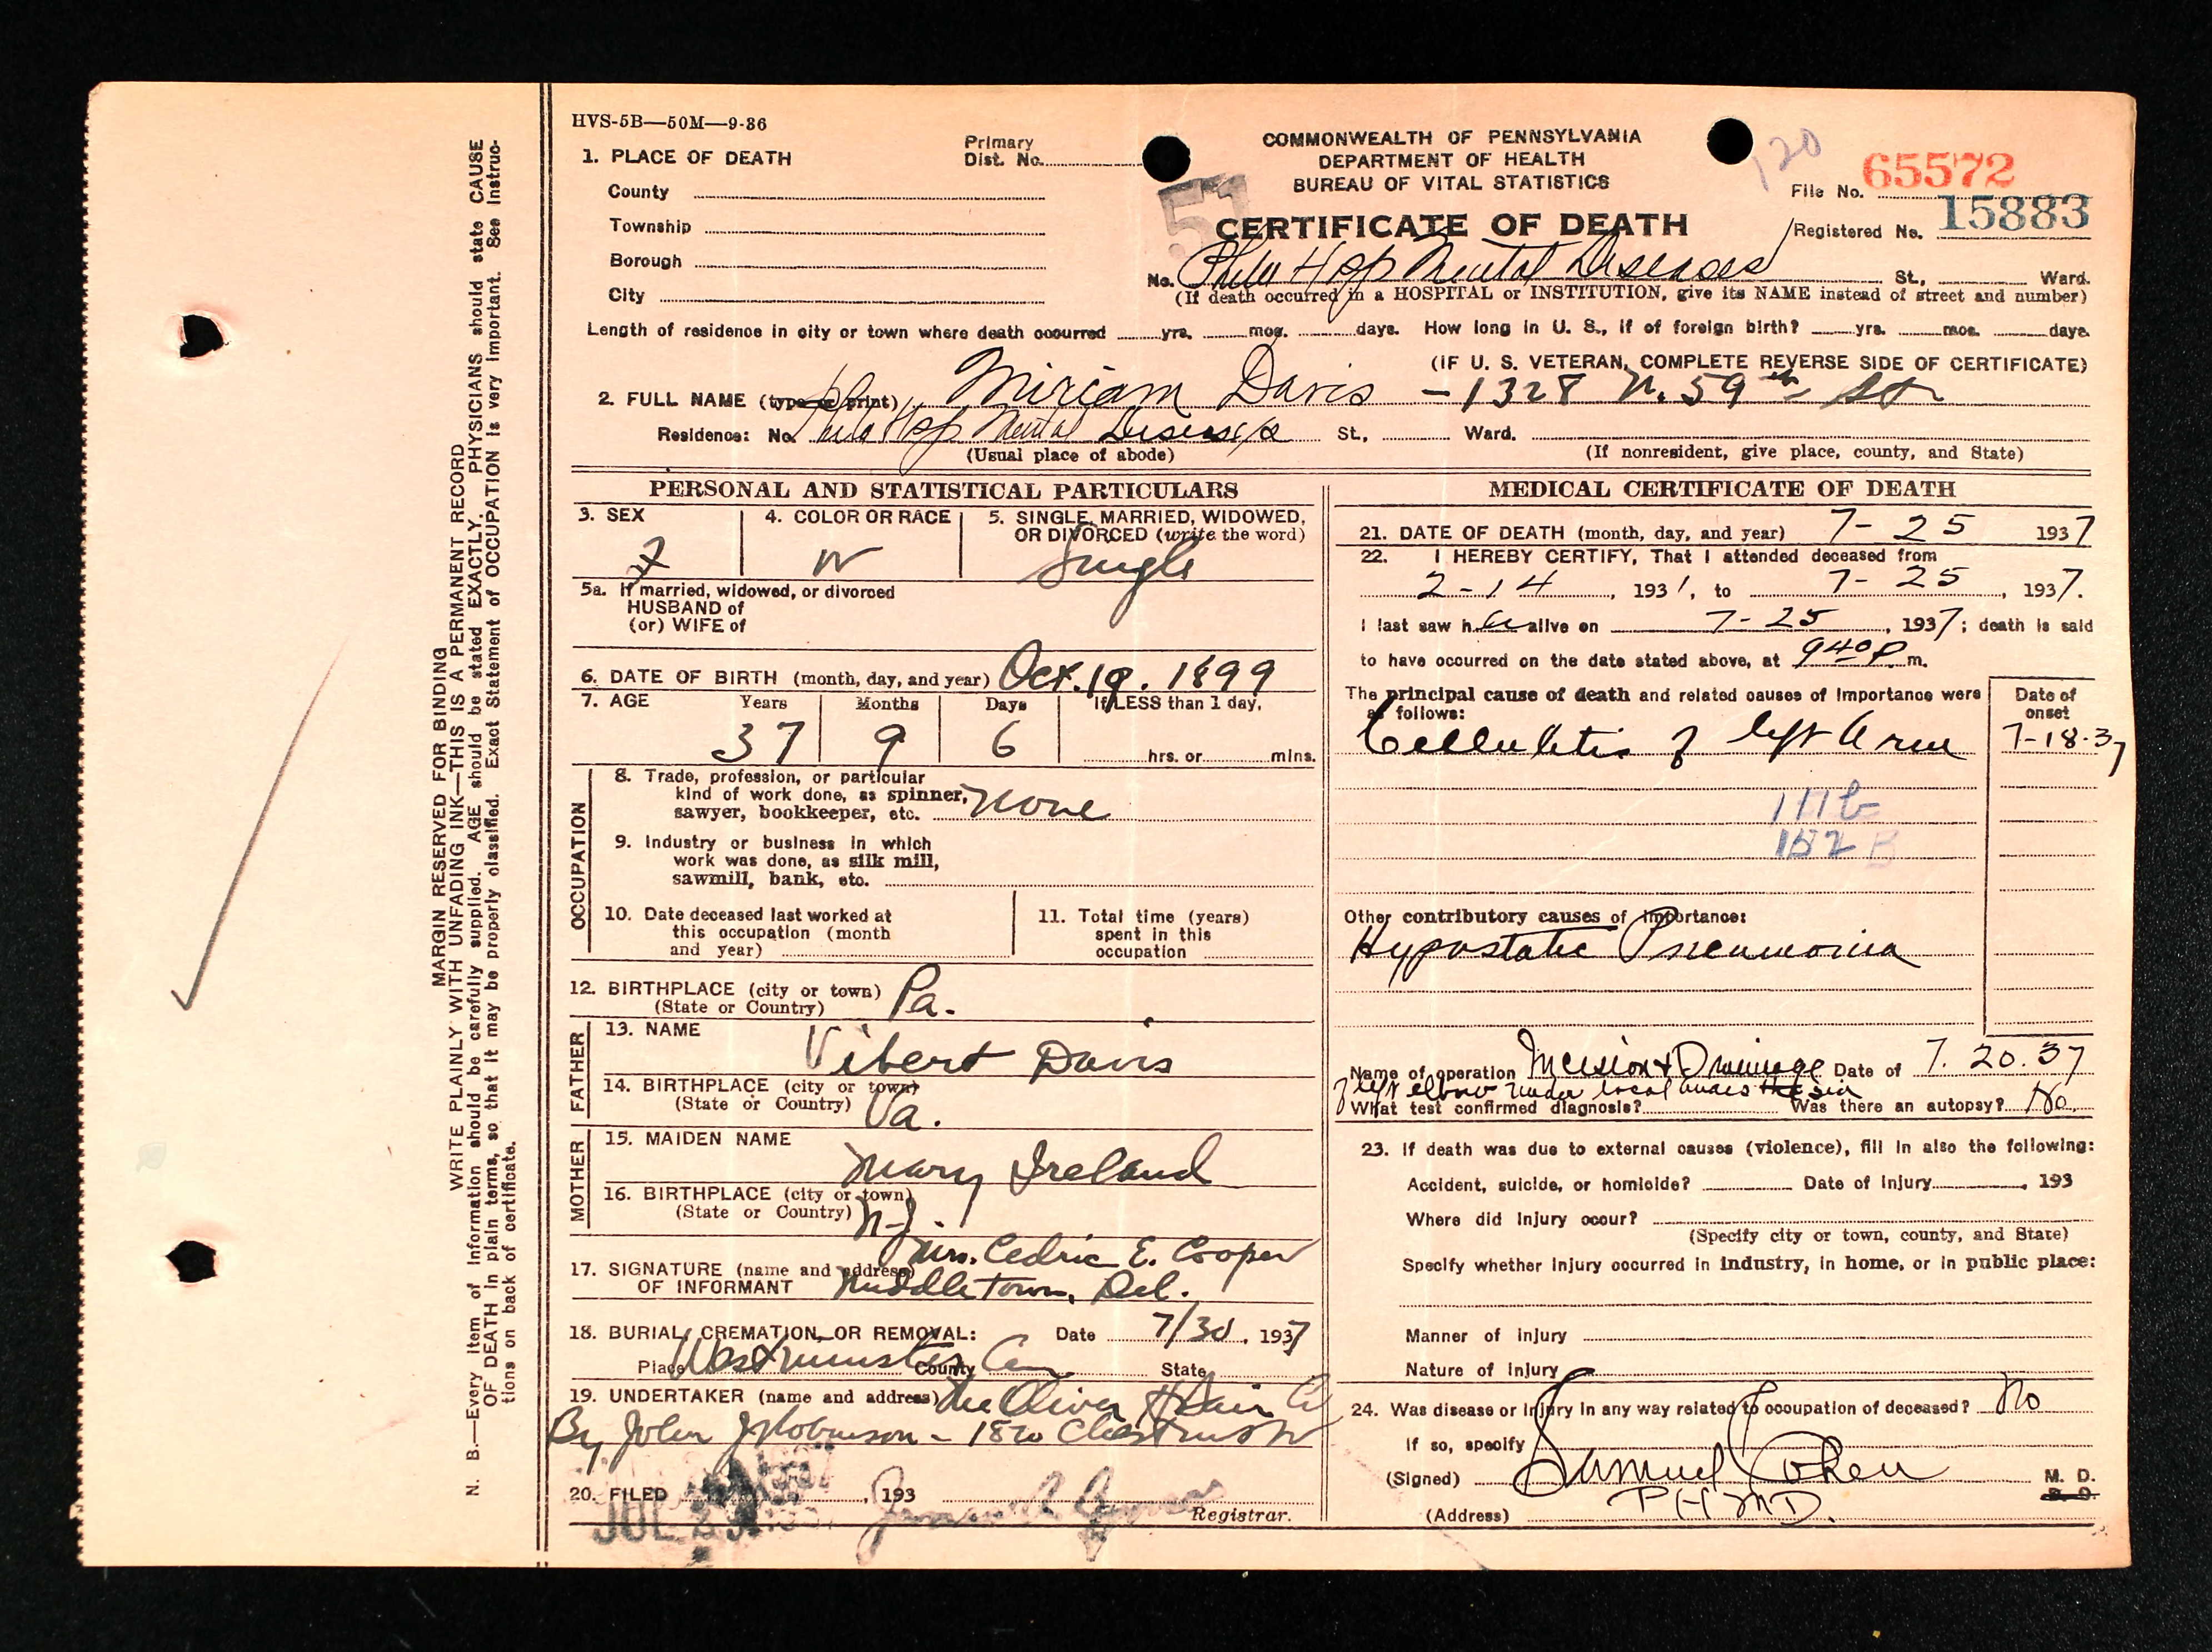 HVS-5B—50M—9-36
1. PLACE OF DEATH
Primary
Dist. No.
County
Township
Borough
City
COMMONWEALTH OF PENNSYLVANIA
DEPARTMENT OF HEALTH
BUREAU OF VITAL STATISTICS
CERTIFICATE OF DEATH
51
120
File No. 65572
Registered No. 15883
No. Phila Hosp Mental Diseases St., Ward.
(If death occurred in a HOSPITAL or INSTITUTION, give its NAME instead of street and number)
Length of residence in city or town where death occurred yrs. mos. days. How long in U. S., if of foreign birth? yrs. mos. days.
(IF U. S. VETERAN, COMPLETE REVERSE SIDE OF CERTIFICATE)
2. FULL NAME (type or print) Miriam Davis - 1328 N. 59th St
Residence: No. Phila Hosp Mental Diseases St., Ward.
(Usual place of abode) (If nonresident, give place, county, and State)
PERSONAL AND STATISTICAL PARTICULARS
3. SEX
F
4. COLOR OR RACE
W
5. SINGLE, MARRIED, WIDOWED,
OR DIVORCED (write the word)
Single
5a. If married, widowed, or divorced
HUSBAND of
(or) WIFE of
6. DATE OF BIRTH (month, day, and year) Oct. 19. 1899
7. AGE Years Months Days If LESS than 1 day,
37 9 6 hrs. or mins.
OCCUPATION
8. Trade, profession, or particular
kind of work done, as spinner,
sawyer, bookkeeper, etc. None
9. Industry or business in which
work was done, as silk mill,
sawmill, bank, etc.
10. Date deceased last worked at
this occupation (month
and year)
11. Total time (years)
spent in this
occupation
12. BIRTHPLACE (city or town)
(State or Country) Pa.
FATHER
13. NAME
Vibert Davis
14. BIRTHPLACE (city or town)
(State or Country) Va.
MOTHER
15. MAIDEN NAME
Mary Ireland
16. BIRTHPLACE (city or town)
(State or Country) N.J.
17. SIGNATURE (name and address) Mrs. Cedric E. Cooper
OF INFORMANT Middletown, Del.
18. BURIAL, CREMATION, OR REMOVAL: Date 7/30, 1937
Place Westminster Cem County State
19. UNDERTAKER (name and address) The Oliver H Bair Co
By John J Robinson - 1820 Chestnut St
20. FILED JUL 29 1937, 193
Registrar.
MEDICAL CERTIFICATE OF DEATH
21. DATE OF DEATH (month, day, and year) 7-25 1937
22. I HEREBY CERTIFY, That I attended deceased from
2-14, 1931, to 7-25, 1937.
I last saw her alive on 7-25, 1937; death is said
to have occurred on the date stated above, at 940 P. m.
The principal cause of death and related causes of importance were
as follows:
Date of
onset
Cellulitis of left Arm 7-18-37
111b
152 B
Other contributory causes of importance:
Hypostatic Pneumonia
Name of operation Incision & Drainage Date of 7. 20. 37
of left elbow under local anaesthesia
What test confirmed diagnosis? Was there an autopsy? No.
23. If death was due to external causes (violence), fill in also the following:
Accident, suicide, or homicide? Date of injury, 193
Where did injury occur?
(Specify city or town, county, and State)
Specify whether injury occurred in industry, in home, or in public place:
Manner of injury
Nature of injury
24. Was disease or injury in any way related to occupation of deceased? No
If so, specify
(Signed) Samuel Cohen M. D.
D. O.
(Address) PHMD.
MARGIN RESERVED FOR BINDING
WRITE PLAINLY WITH UNFADING INK—THIS IS A PERMANENT RECORD
N. B.—Every item of information should be carefully supplied. AGE should be stated EXACTLY. PHYSICIANS should state CAUSE
OF DEATH in plain terms, so that it may be properly classified. Exact Statement of OCCUPATION is very important. See Instruc-
tions on back of certificate.